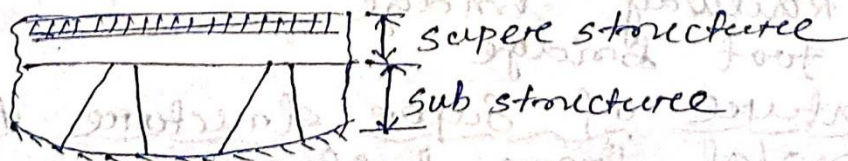 supere structuree
sub structuree